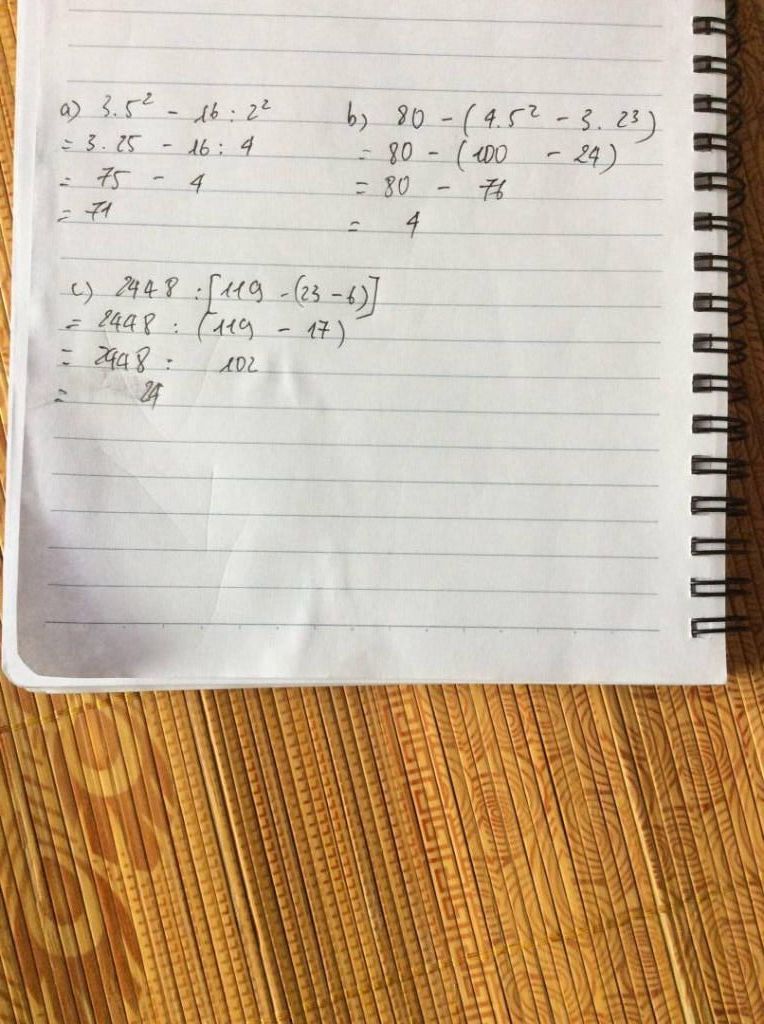 a) 3.5² - 16 : 2²
= 3.25 - 16 : 4
= 75 - 4
= 71
b) 80 - (4.5² - 3.2³)
= 80 - (100 - 24)
= 80 - 76
= 4
c) 2448 : [119 - (23 - 6)]
= 2448 : (119 - 17)
= 2448 : 102
= 24